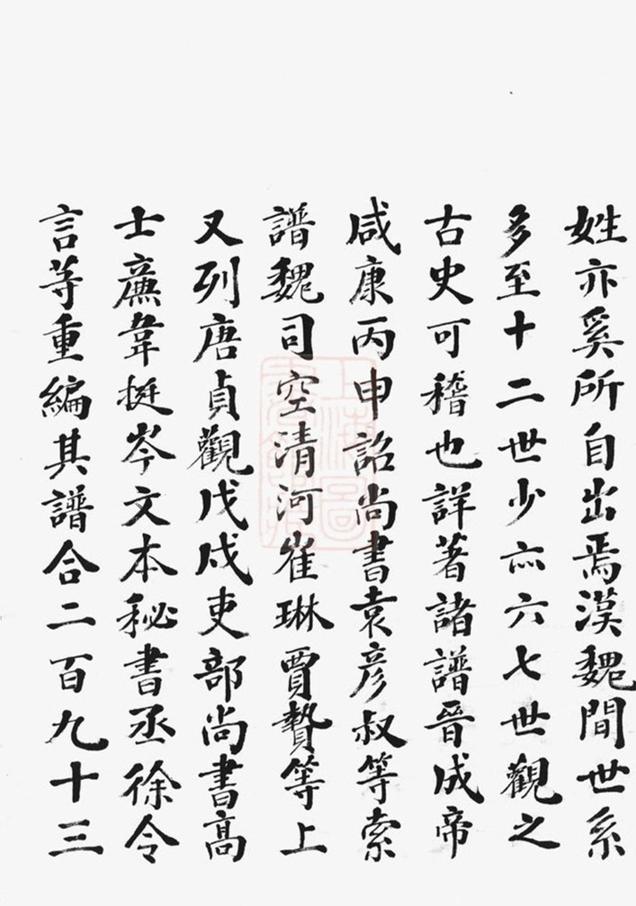 姓亦奚所自出焉漢魏間世系
多至十二世少亦六七世觀之
古史可稽也詳著諸譜晉成帝
咸康丙申詔尚書袁彦叔等索
譜魏司空清河崔琳賈贄等上
又列唐貞觀戊戌吏部尚書高
士廉韋挺岑文本秘書丞徐令
言等重編其譜合二百九十三